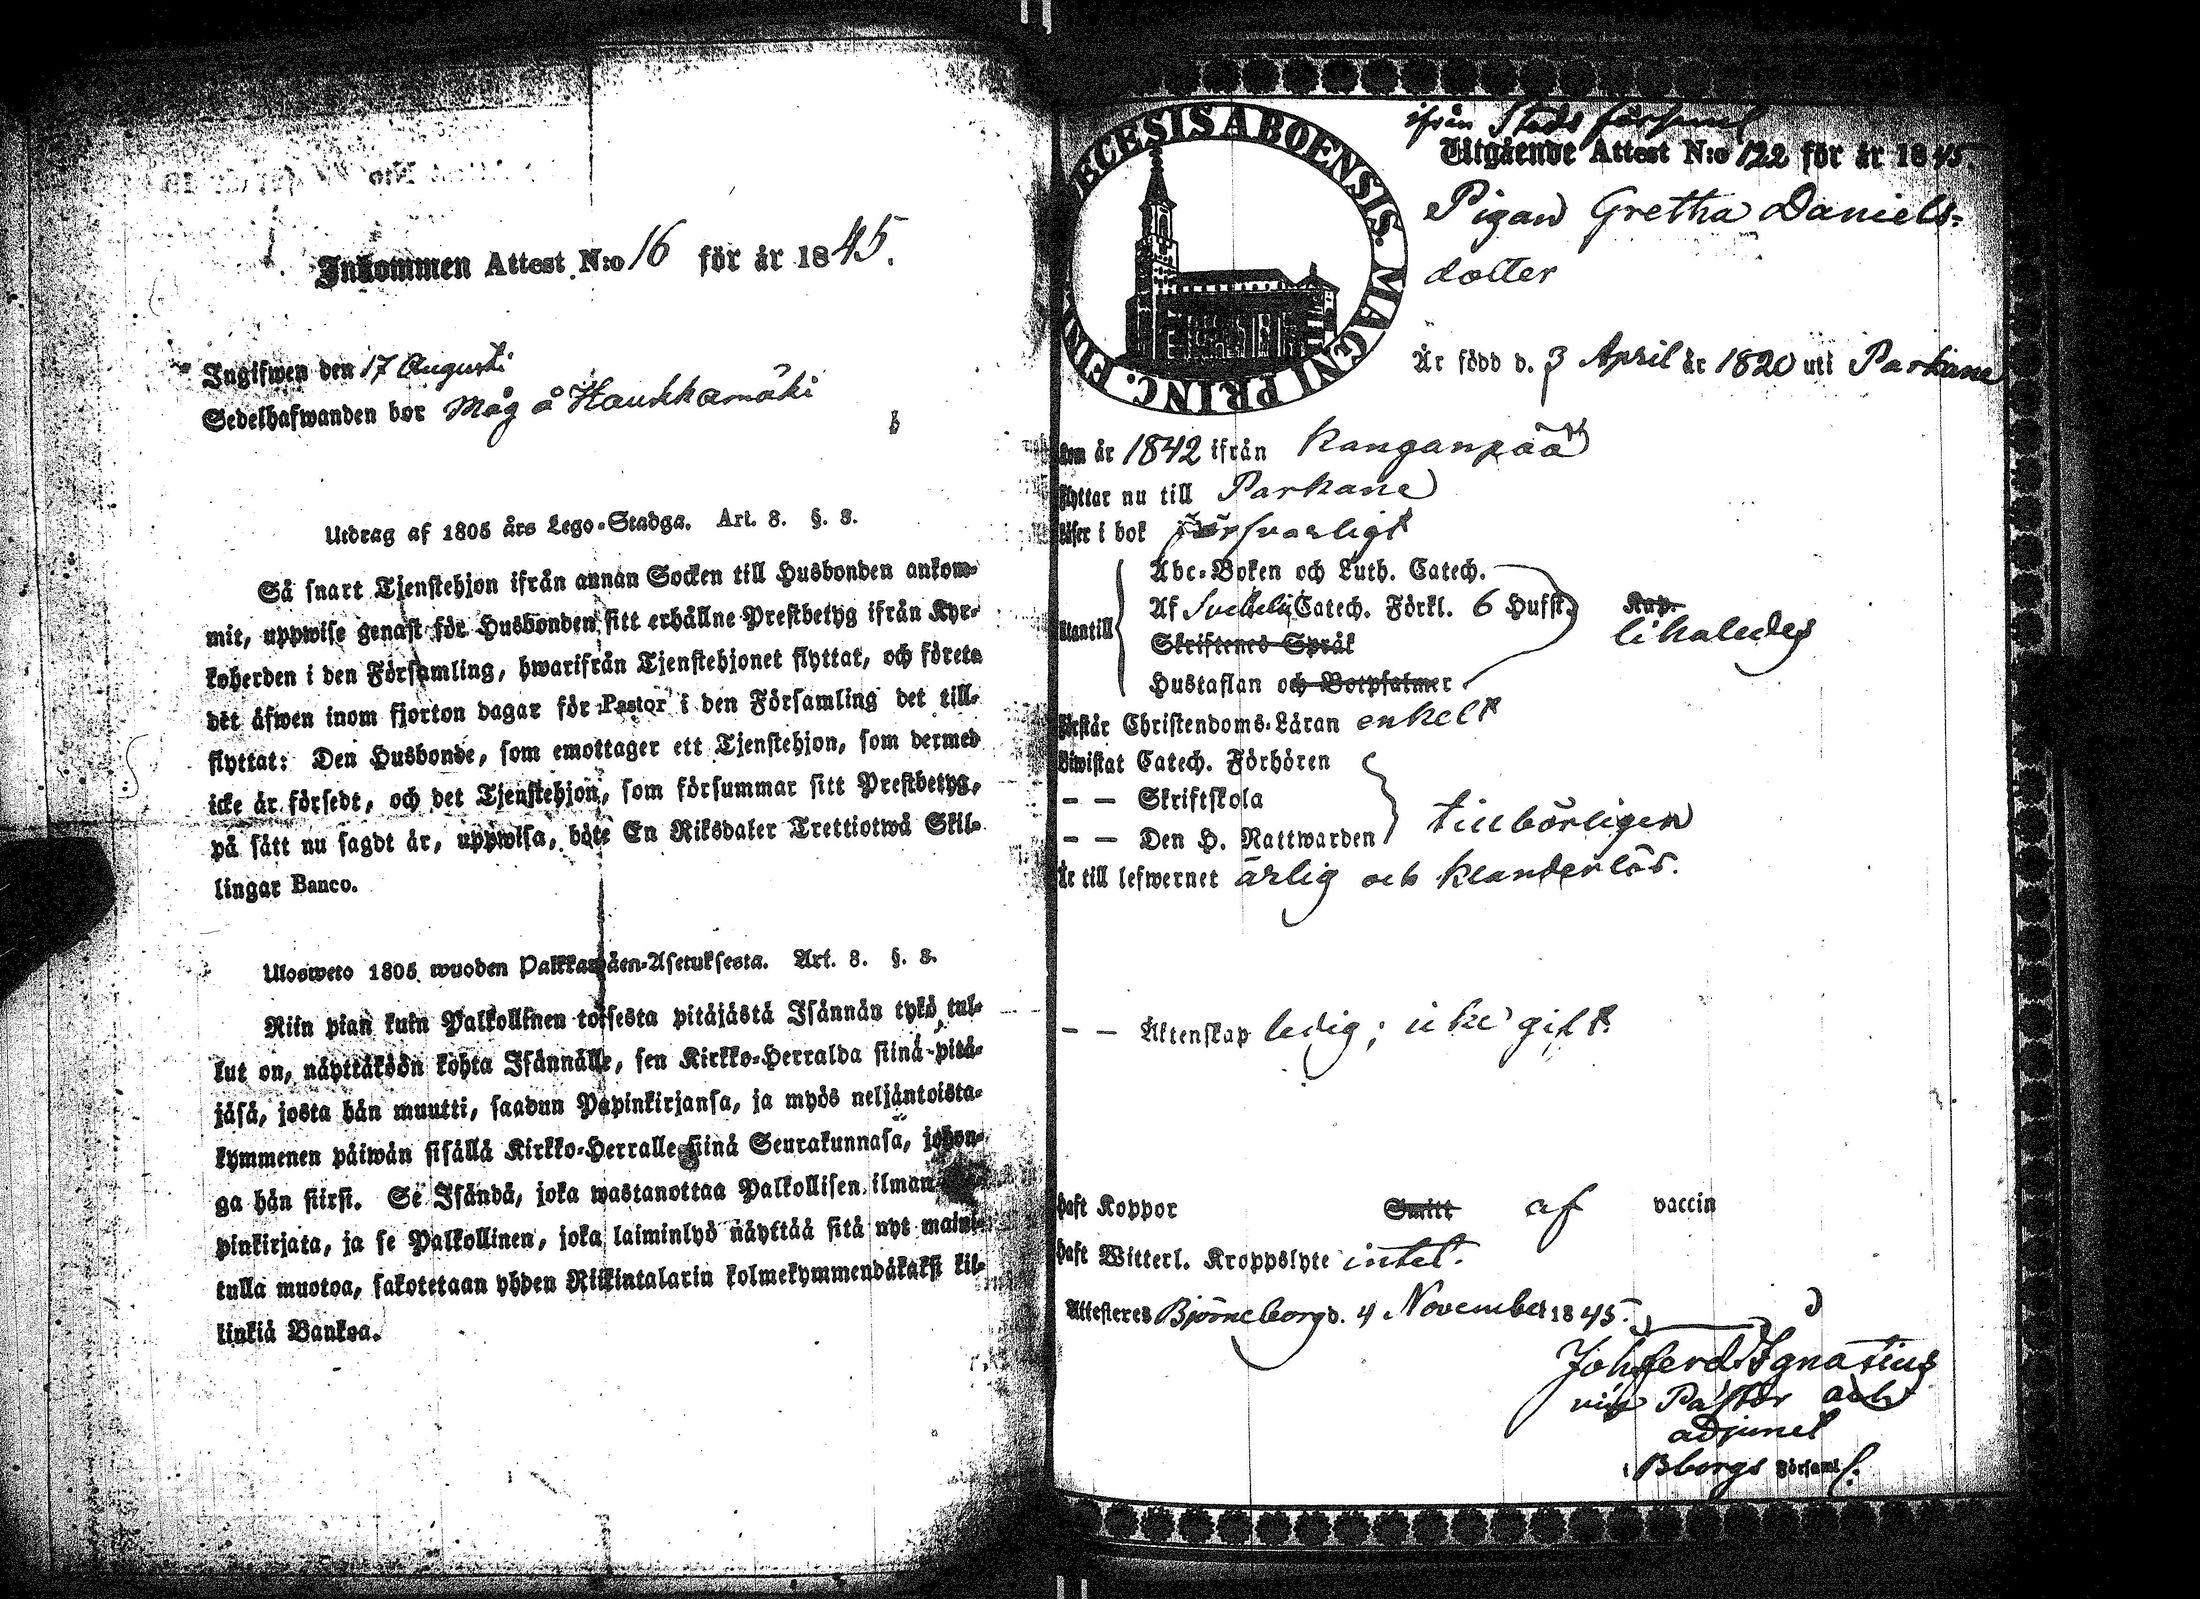 Inkommen Attest N:o 16 för år 1845.
Ingifwen den 17 Augusti
Sedelhafwanden bor Måg å Haukkamäki
Utdrag af 1805 års Lego-Stadga. Art. 8. §. 8.
Så snart Tjenstehjon ifrån annan Socken till Husbonden ankom-
mit, uppwise genast för Husbonden sitt erhållne Prestbetyg ifrån Kyr-
koherden i den Församling, hwarifrån Tjenstehjonet flyttat, och företa
det äfwen inom fjorton dagar för Pastor i den Församling det till-
flyttat: Den Husbonde, som emottager ett Tjenstehjon, som dermed
icke är försedt, och det Tjenstehjon, som försummar sitt Prestbetyg,
på sätt nu sagdt är, uppwisa, böte En Riksdaler Trettiotwå Skil-
lingar Banco.
Ulosweto 1805 wuoden Palkkawäen-Asetuksesta. Art. 8. §. 8.
Niin pian kuin Palkollinen toisesta pitäjästä Isännän tykö tul-
lut on, näyttäköön kohta Isännälle, sen Kirkko-Herralda siinä pitä-
jäsä, josta hän muutti, saadun Papinkirjansa, ja myös neljäntoista-
kymmenen päiwän sisällä Kirkko-Herralle siinä Seurakunnasa, johon-
ga hän siirsi. Se Isändä, joka wastanottaa Palkollisen ilman
pinkirjata, ja se Palkollinen, joka laiminlyö näyttää sitä nyt maini-
tulla muotoa, sakotetaan yhden Riikintalarin kolmekymmendäkaksi kil-
linkiä Bankoa.
ECESIS ABOENSIS. MAGNI PRINC. FIN
ifrån Stads församl
Utgående Attest N:o 122 för år 1845.
Pigan Gretha Daniels-
dotter
Är född d. 3 April år 1820 uti Parkano
kom år 1842 ifrån Kanganpää
flyttar nu till Parkano
läser i bok försvarligt
Abc-Boken och Luth. Catech.
Af Svebelii Catech. Förkl. 6 Hufst.
likaledes
utantill
Skriftenes Språk
Hustaflan och Botpsalmer
förstår Christendoms-Läran enkelt
Biwistat Catech. Förhören
— — Skriftskola
— — Den H. Nattwarden tillbörligen
Är till lefwernet ärlig och klanderlös.
— — Äktenskap ledig; icke gift.
haft Koppor Smitt af vaccin
haft Witterl. Kroppslyte intet.
Attesteres Björneborg d. 4 November 1845.
Joh Ferd Ignatius
vice Pastor och
adjunct
i Bborgs Församl.